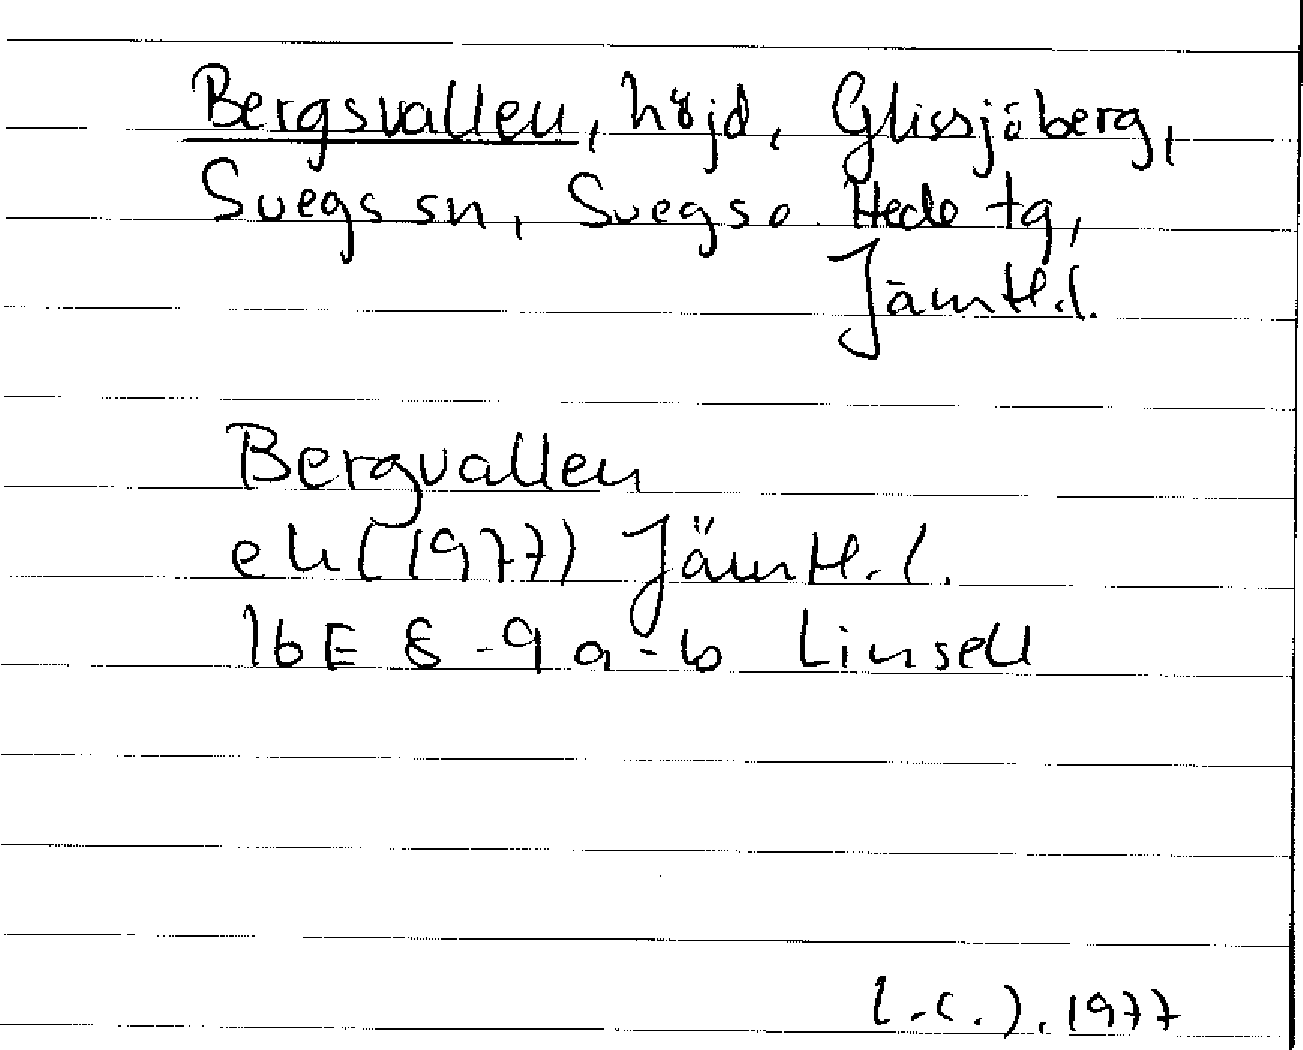 Bergsvallen, höjd, Glissjöberg,
Svegs sn, Svegs o. Hede tg,
Jämtl.l.
Bergvallen
ek (1977) Jämtl.l.
16E 8-9 a-b Linsell
1977